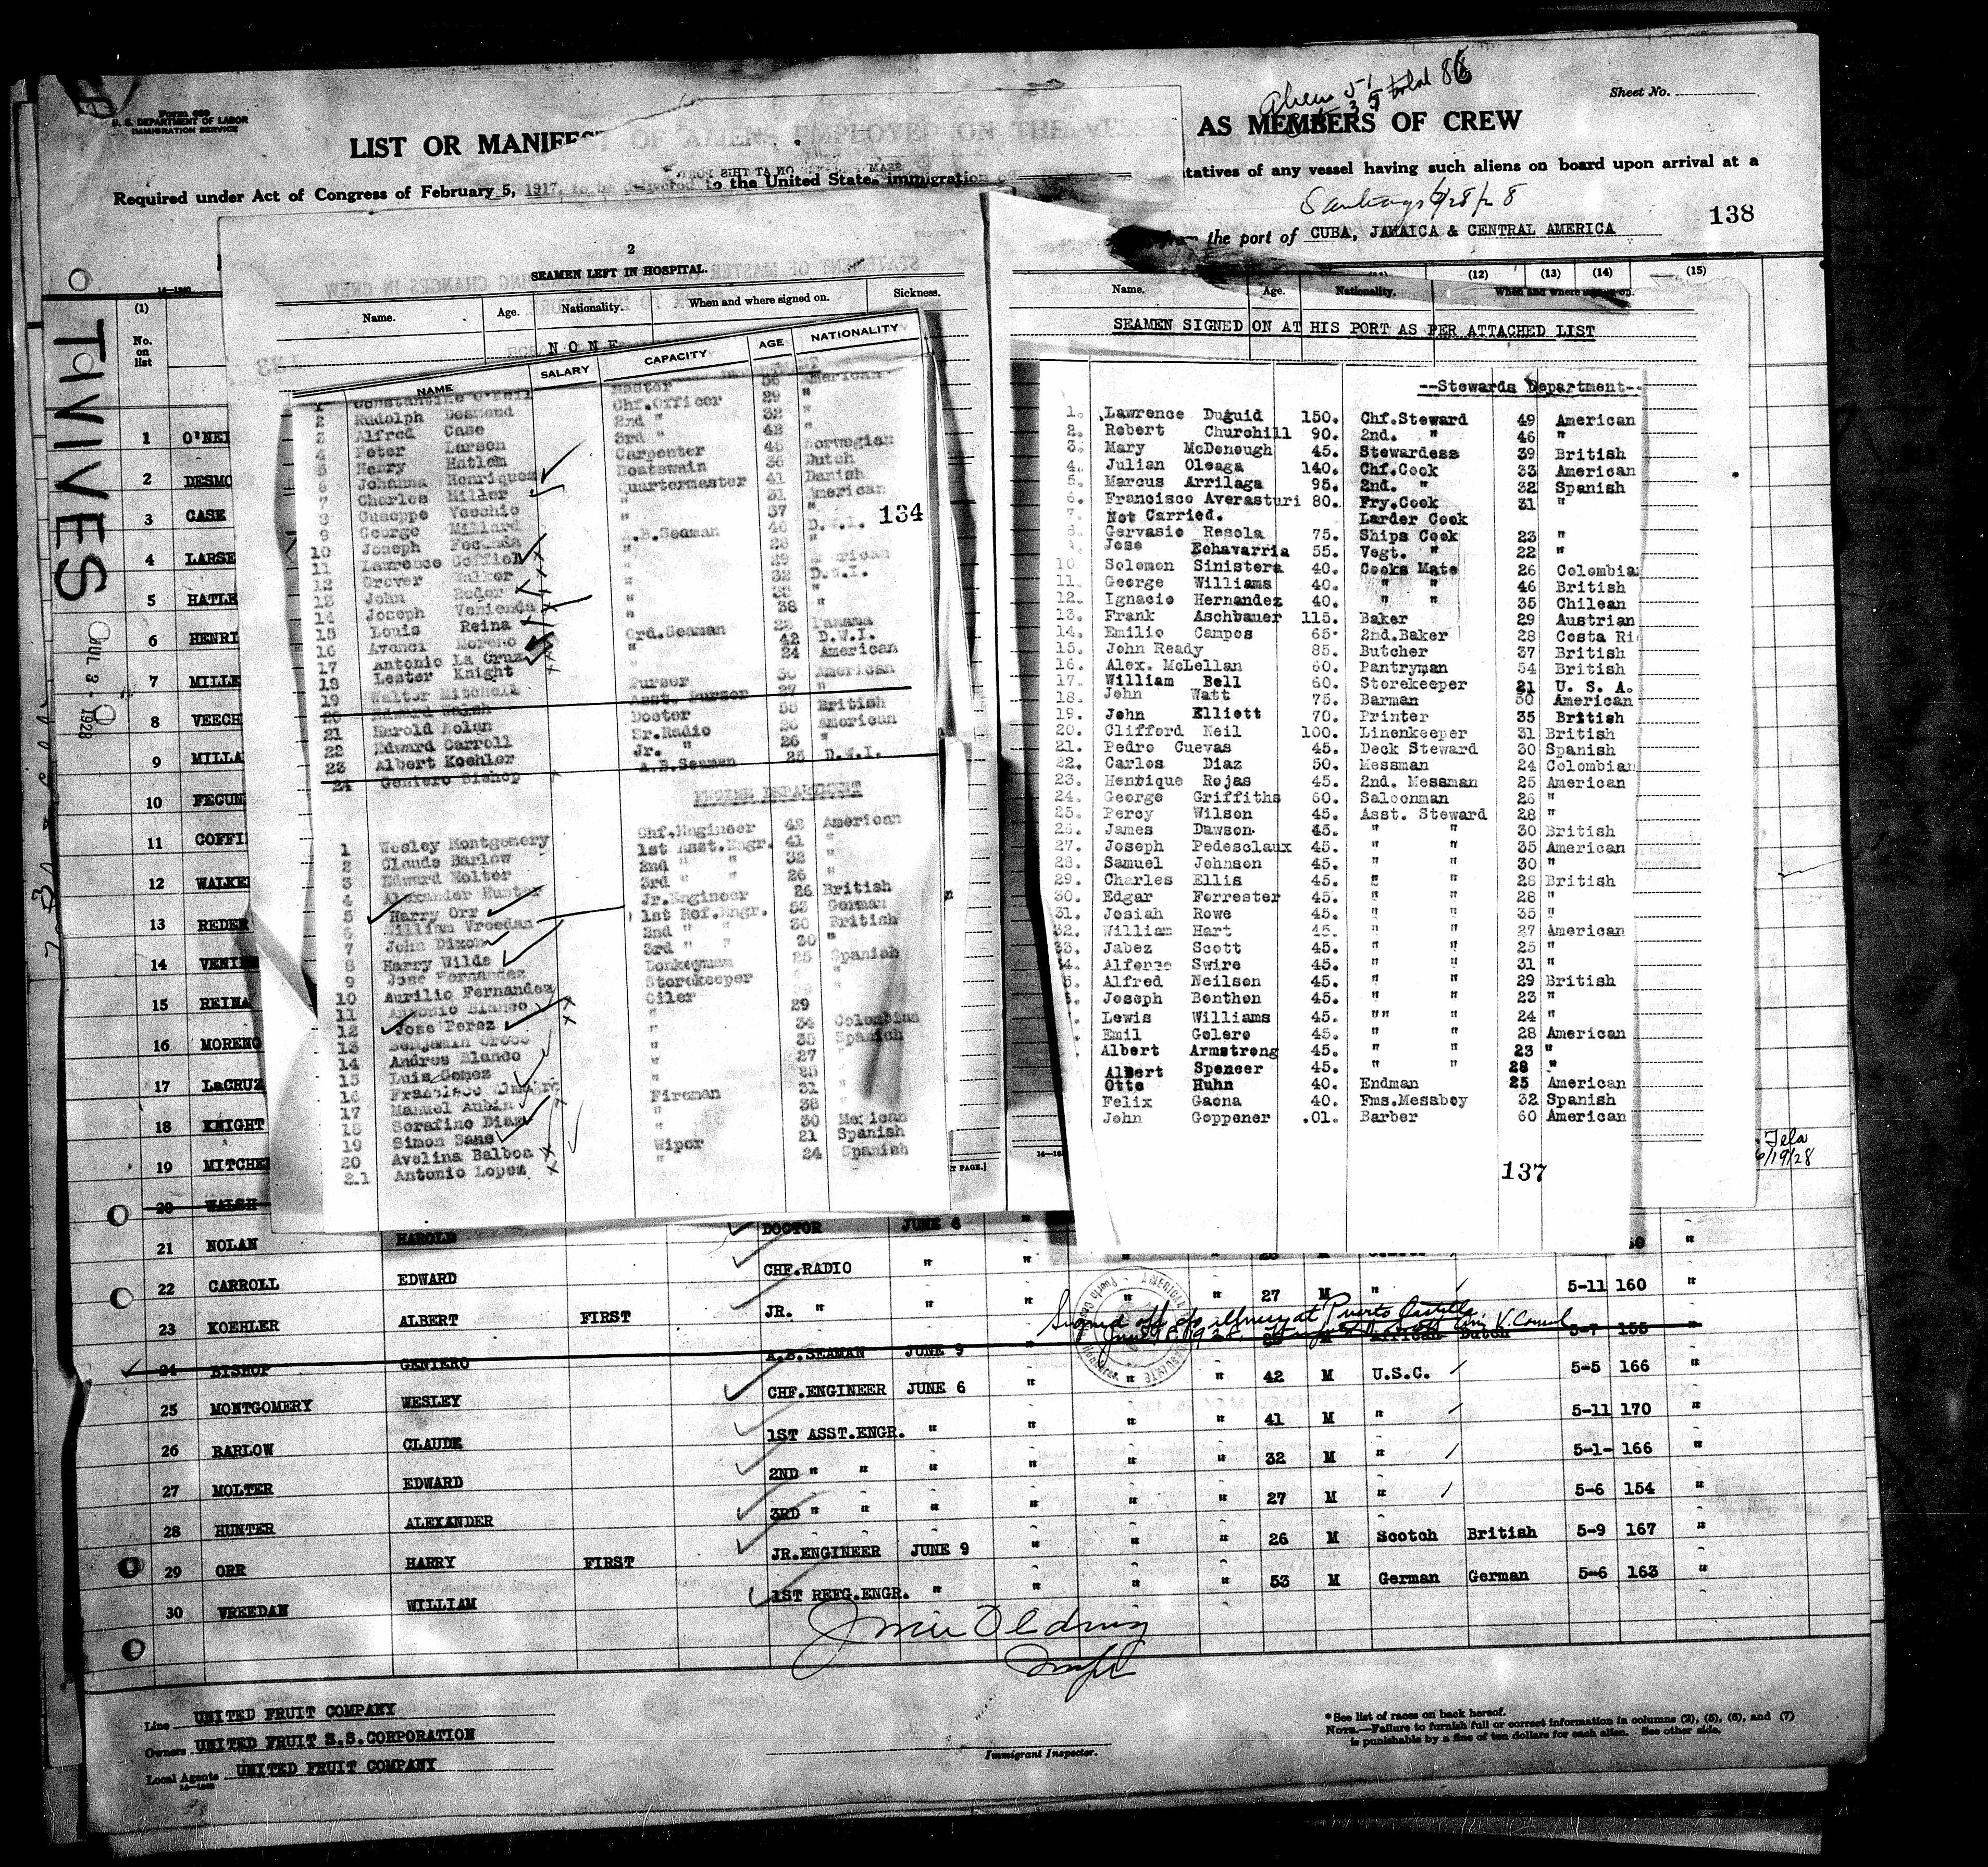 Form 680
U. S. DEPARTMENT OF LABOR
IMMIGRATION SERVICE
Alien 51 total 86
35
Sheet No.
LIST OR MANIFEST OF ALIEN AS MEMBERS OF CREW
Required under Act of Congress of February 5, 1917, to be delivered to the United States immigration
tatives of any vessel having such aliens on board upon arrival at a
Santiago 6/28/28
the port of CUBA, JAMAICA & CENTRAL AMERICA
138
(12) (13) (14) (15)
TIVIVES
JUL 3 - 1928
(1)
No. on list
1 O'NEI
2 DESMO
3 CASE
4 LARSE
5 HATLE
6 HENRI
7 MILLE
8 VEECH
9 MILLA
10 FECUN
11 COFFI
12 WALKE
13 REDER
14 VENIE
15 REINA
16 MORENO
17 LaCRUZ
18 KNIGHT
19 MITCHE
20 WALSH
2
SEAMEN LEFT IN HOSPITAL.
Name. Age. Nationality. When and where signed on. Sickness.
NONE
NAME SALARY CAPACITY AGE NATIONALITY
1 Constantine O'Neil Master 56 American
2 Rudolph Desmond Chf.Officer 29 "
3 Alfred Case 2nd " 32 "
4 Peter Larsen 3rd " 42 "
5 Henry Hatlem Carpenter 45 Norwegian
6 Johanna Henriquez Boatswain 36 Dutch
7 Charles Milder Quartermaster 41 Danish
8 Guseppe Vecchio " 31 American
9 George Millard " 37 "
134
10 Joseph Fecunda A.B.Seaman 46 D.W.I.
11 Lawrence Coffieh "
12 Grover Walker " 29 American
13 John Reder " 32 D.W.I.
14 Joseph Venienda "
15 Louis Reina " 38 "
16 Avonci Moreno Ord.Seaman 22 Panama
17 Antonio La Cruz " 42 D.W.I.
18 Lester Knight " 24 American
19 Walter Mitchell Purser 30 American
20 Edward Walsh Asst. Purser 27 "
21 Harold Nolan Doctor 55 British
22 Edward Carroll Sr.Radio 26 American
23 Albert Koehler Jr. " 26 "
24 Geniero Bishop A.B.Seaman 25 D.W.I.
ENGINE DEPARTMENT
1 Wesley Montgomery Chf.Engineer 42 American
2 Claude Barlow 1st Asst.Engr. 41 "
3 Edward Molter 2nd " " 32 "
4 Alexander Hunter 3rd " " 26 "
5 Harry Orr Jr.Engineer 26 British
6 William Vreedan 1st Ref.Engr. 53 German
7 John Dixon 2nd " " 30 British
8 Harry Wilde 3rd " " 30 "
9 Jose Fernandez Donkeyman 25 Spanish
10 Aurilio Fernandez Storekeeper
11 Antonio Blanco Oiler 29
12 Jose Perez " 34 Colombian
13 Benjamin Croco " 35 Spanish
14 Andres Blanco " 27
15 Luis Gomez " 25
16 Francisco Fireman 31 "
17 Manuel Aubin " 38 "
18 Serafino Diaz " 30 Mexican
19 Simon Sans Wiper 21 Spanish
20 Avelina Balboa " 24 Spanish
21 Antonio Lopez
Name. Age. Nationality. When and where signed on.
SEAMEN SIGNED ON AT HIS PORT AS PER ATTACHED LIST
--Stewards Department--
1. Lawrence Duguid 150. Chf.Steward 49 American
2. Robert Churchill 90. 2nd. " 46 "
3. Mary McDonough 45. Stewardess 39 British
4. Julian Oleaga 140. Chf.Cook 33 American
5. Marcus Arrilaga 95. 2nd. " 32 Spanish
6. Francisco Averasturi 80. Fry.Cook 31 "
7. Not Carried. Larder Cook
8. Gervasio Resola 75. Ships Cook 23 "
Jose Echavarria 55. Vegt. " 22 "
10 Solomon Sinistera 40. Cooks Mate 26 Colombia
11. George Williams 40. " " 46 British
12. Ignacio Hernandez 40. " " 35 Chilean
13. Frank Aschbauer 115. Baker 29 Austrian
14. Emilio Campos 65. 2nd.Baker 28 Costa Ri
15. John Ready 85. Butcher 37 British
16. Alex. McLellan 60. Pantryman 54 British
17. William Bell 60. Storekeeper 21 U. S. A.
18. John Watt 75. Barman 50 American
19. John Elliott 70. Printer 35 British
20. Clifford Neil 100. Linenkeeper 31 British
21. Pedro Cuevas 45. Deck Steward 30 Spanish
22. Carlos Diaz 50. Messman 24 Colombian
23. Henrique Rojas 45. 2nd. Messman 25 American
24. George Griffiths 60. Saloonman 26 "
25. Percy Wilson 45. Asst. Steward 28 "
26. James Dawson 45. " " 30 British
27. Joseph Pedesclaux 45. " " 35 American
28. Samuel Johnson 45. " " 30 "
29. Charles Ellis 45. " " 28 British
30. Edgar Forrester 45. " " 28 "
31. Josiah Rowe 45. " " 35 "
32. William Hart 45. " " 27 American
33. Jabez Scott 45. " " 25 "
34. Alfonzo Swire 45. " " 31 "
5. Alfred Neilson 45. " " 29 British
Joseph Benthon 45. " " 23 "
Lewis Williams 45. "" " 24 "
Emil Golero 45. " " 28 American
Albert Armstrong 45. " " 23 "
Albert Spencer 45. " " 28 "
Otto Huhn 40. Endman 25 American
Felix Gaona 40. Fms.Messboy 32 Spanish
John Goppener .01. Barber 60 American
137
Tela
6/19/28
21 NOLAN HAROLD DOCTOR JUNE 6 "
22 CARROLL EDWARD CHF.RADIO " "
23 KOEHLER ALBERT FIRST JR. " " " " " 27 M " 5-11 160 "
Signed off at Puerto Castilla
V. Consul
24 BISHOP GENIERO A.B.SEAMAN JUNE 9 M African Dutch 5-7 155
25 MONTGOMERY WESLEY CHF.ENGINEER JUNE 6 " " " 42 M U.S.C. 5-5 166 "
26 BARLOW CLAUDE 1ST ASST.ENGR. " " " " 41 M " 5-11 170 "
27 MOLTER EDWARD 2ND " " " " " " 32 M " 5-1- 166 "
28 HUNTER ALEXANDER 3RD " " " " " " 27 M " 5-6 154 "
29 ORR HARRY FIRST JR.ENGINEER JUNE 9 " " " 26 M Scotch British 5-9 167 "
30 VREEDAN WILLIAM 1ST REFG.ENGR. " " " " 53 M German German 5-6 163 "
Line UNITED FRUIT COMPANY
Owners UNITED FRUIT S.S.CORPORATION
Local Agents UNITED FRUIT COMPANY
Immigrant Inspector.
*See list of races on back hereof.
NOTE.—Failure to furnish full or correct information in columns (2), (5), (6), and (7)
is punishable by a fine of ten dollars for each alien. See other side.